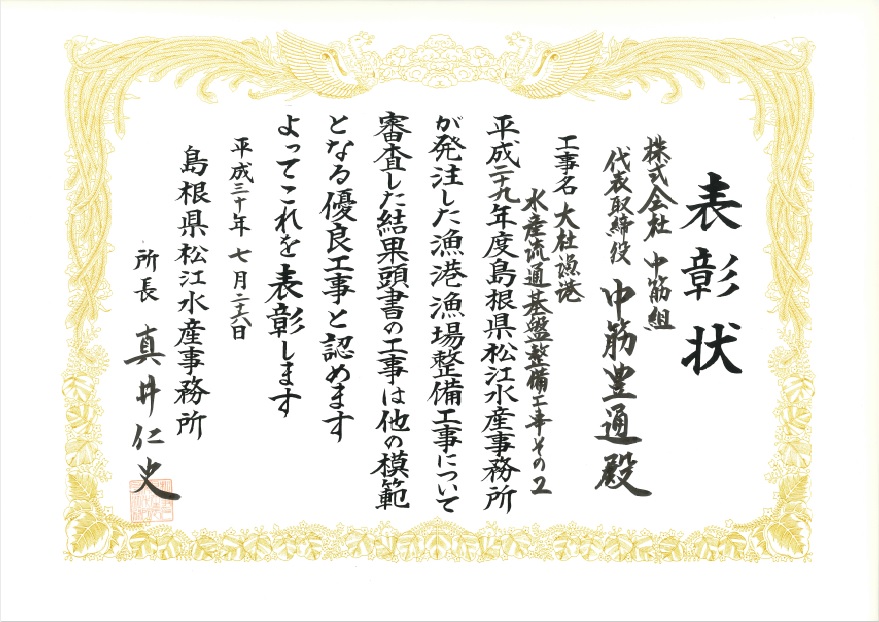 表彰状
株式会社 中筋組
代表取締役 中筋豊通殿
工事名 大社漁港
水産流通基盤整備工事その2
平成二十九年度島根県松江水産事務所
が発注した漁港漁場整備工事について
審査した結果頭書の工事は他の模範
となる優良工事と認めます
よってこれを表彰します
平成三十年 七月二十六日
島根県松江水産事務所
所長 真井仁史